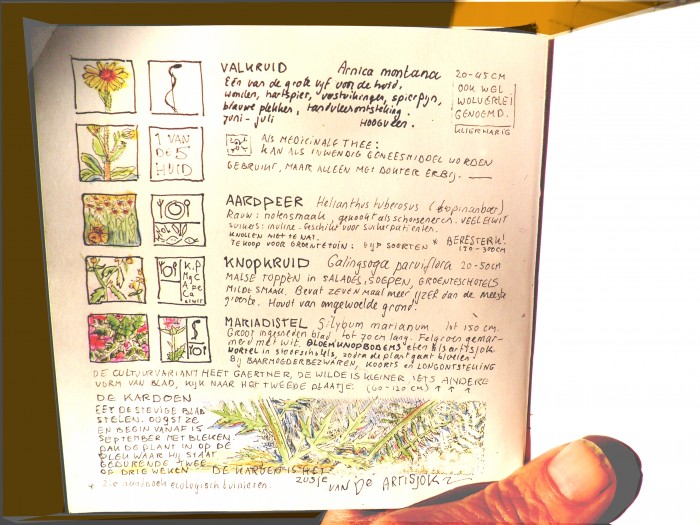 VALKRUID Arnica montana
Eén van de grote vijf voor de huid.
wonden, hartspier, verstuikingen, spierpijn,
blauwe plekken, tandvleesontsteking.
juni - juli HOOGVEEN.
20-45 CM
OOK WEL
WOLVERLEI
GENOEMD.
KLIERHARIG
1 VAN
DE 5
HUID
ALS MEDICINALE THEE:
KAN ALS INWENDIG GENEESMIDDEL WORDEN
GEBRUIKT, MAAR ALLEEN MET DOKTER ERBIJ.
AARDPEER Helianthus tuberosus (topinamboer)
Rauw: notensmaak, gekookt als schorseneren. VEEL EIWIT
suikers: inuline - Geschikt voor suikerpatienten.
KNOLLEN NIET TE NAT.
TE KOOP VOOR GROENTETUIN: SOORTEN * BERESTERK!
KNOPKRUID Galingsoga parviflora 20-50CM
K.P
Mg C
Ca
MALSE TOPPEN in SALADES, SOEPEN, GROENTESCHOTELS
MILDE SMAAK. Bevat ZEVEN maal meer IJZER dan de meeste
groente. Houdt van omgewoelde grond.
MARIADISTEL Silybum marianum tot 150 cm.
Groot ingesneden blad, tot 70 cm lang. Felgroen gemar-
merd met wit. BLOEMKNOPBODEMS eten als artisjok
WORTEL in stoofschotels, zodra de plant gaat bloeien
Bij BAARMOEDERBEZWAREN, KOORTS en LONGONTSTEKING
DE CULTUURVARIANT HEET GAERTNER, DE WILDE IS KLEINER, IETS ANDERE
VORM VAN BLAD, KIJK NAAR HET TWEEDE PLAATJE. (60-120 CM) ↑ ↑ ↑
DE KARDOEN
EET DE STEVIGE BLAD
STELEN. OOGST ZE
EN BEGIN VANAF 15
SEPTEMBER MET BLEKEN.
PAK DE PLANT IN OP DE
PLEK WAAR HIJ STAAT
GEDURENDE TWEE
OF DRIE WEKEN
DE KARDOEN IS HET
ZUSJE
VAN DE ARTISJOK
* Zie handboek ecologisch tuinieren.